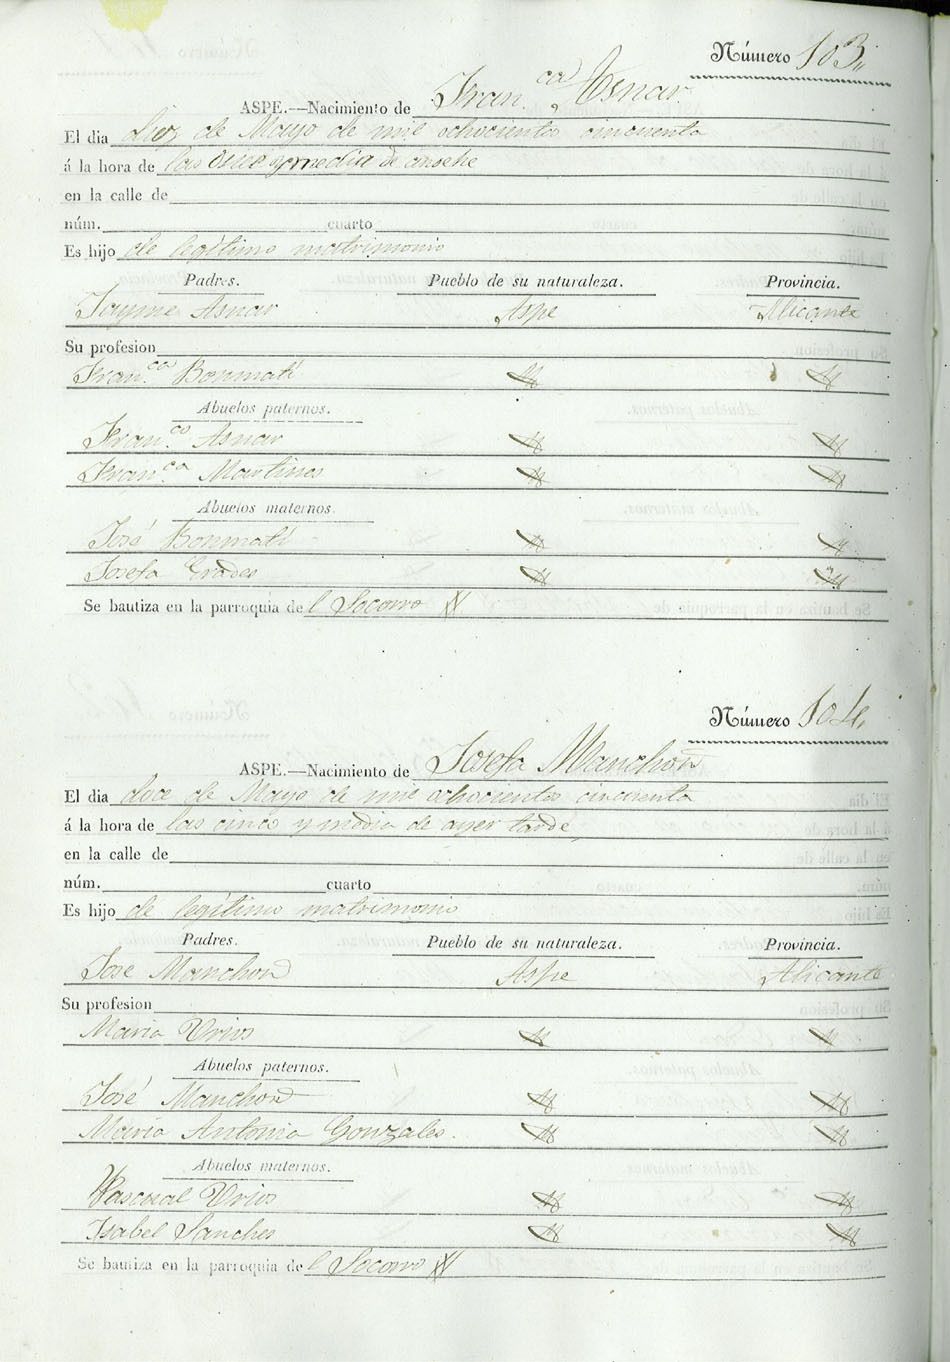 Número 103,,
ASPE.—Nacimiento de Fran.ca Asnar
El dia diez de Mayo de mil ochocientos cincuenta
á la hora de las once y media de anoche
en la calle de
núm. cuarto
Es hijo de legitimo matrimonio
Padres. Pueblo de su naturaleza. Provincia.
Jayme Asnar Aspe Alicante
Su profesion
Fran.ca Bonmatí
Abuelos paternos.
Fran.co Asnar
Fran.ca Martines
Abuelos maternos.
José Bonmatí
Josefa
Se bautiza en la parroquia del Socorro
Número 104,,
ASPE.—Nacimiento de Josefa Manchon
El dia doce de Mayo de mil ochocientos cincuenta
á la hora de las cinco y media de ayer tarde
en la calle de
núm. cuarto
Es hijo de legitimo matrimonio
Padres. Pueblo de su naturaleza. Provincia.
José Manchon Aspe Alicante
Su profesion
Maria Urios
Abuelos paternos.
José Manchon
Maria Antonia Gonzales.
Abuelos maternos.
Pascual Urios
Isabel Sanches
Se bautiza en la parroquia del Socorro